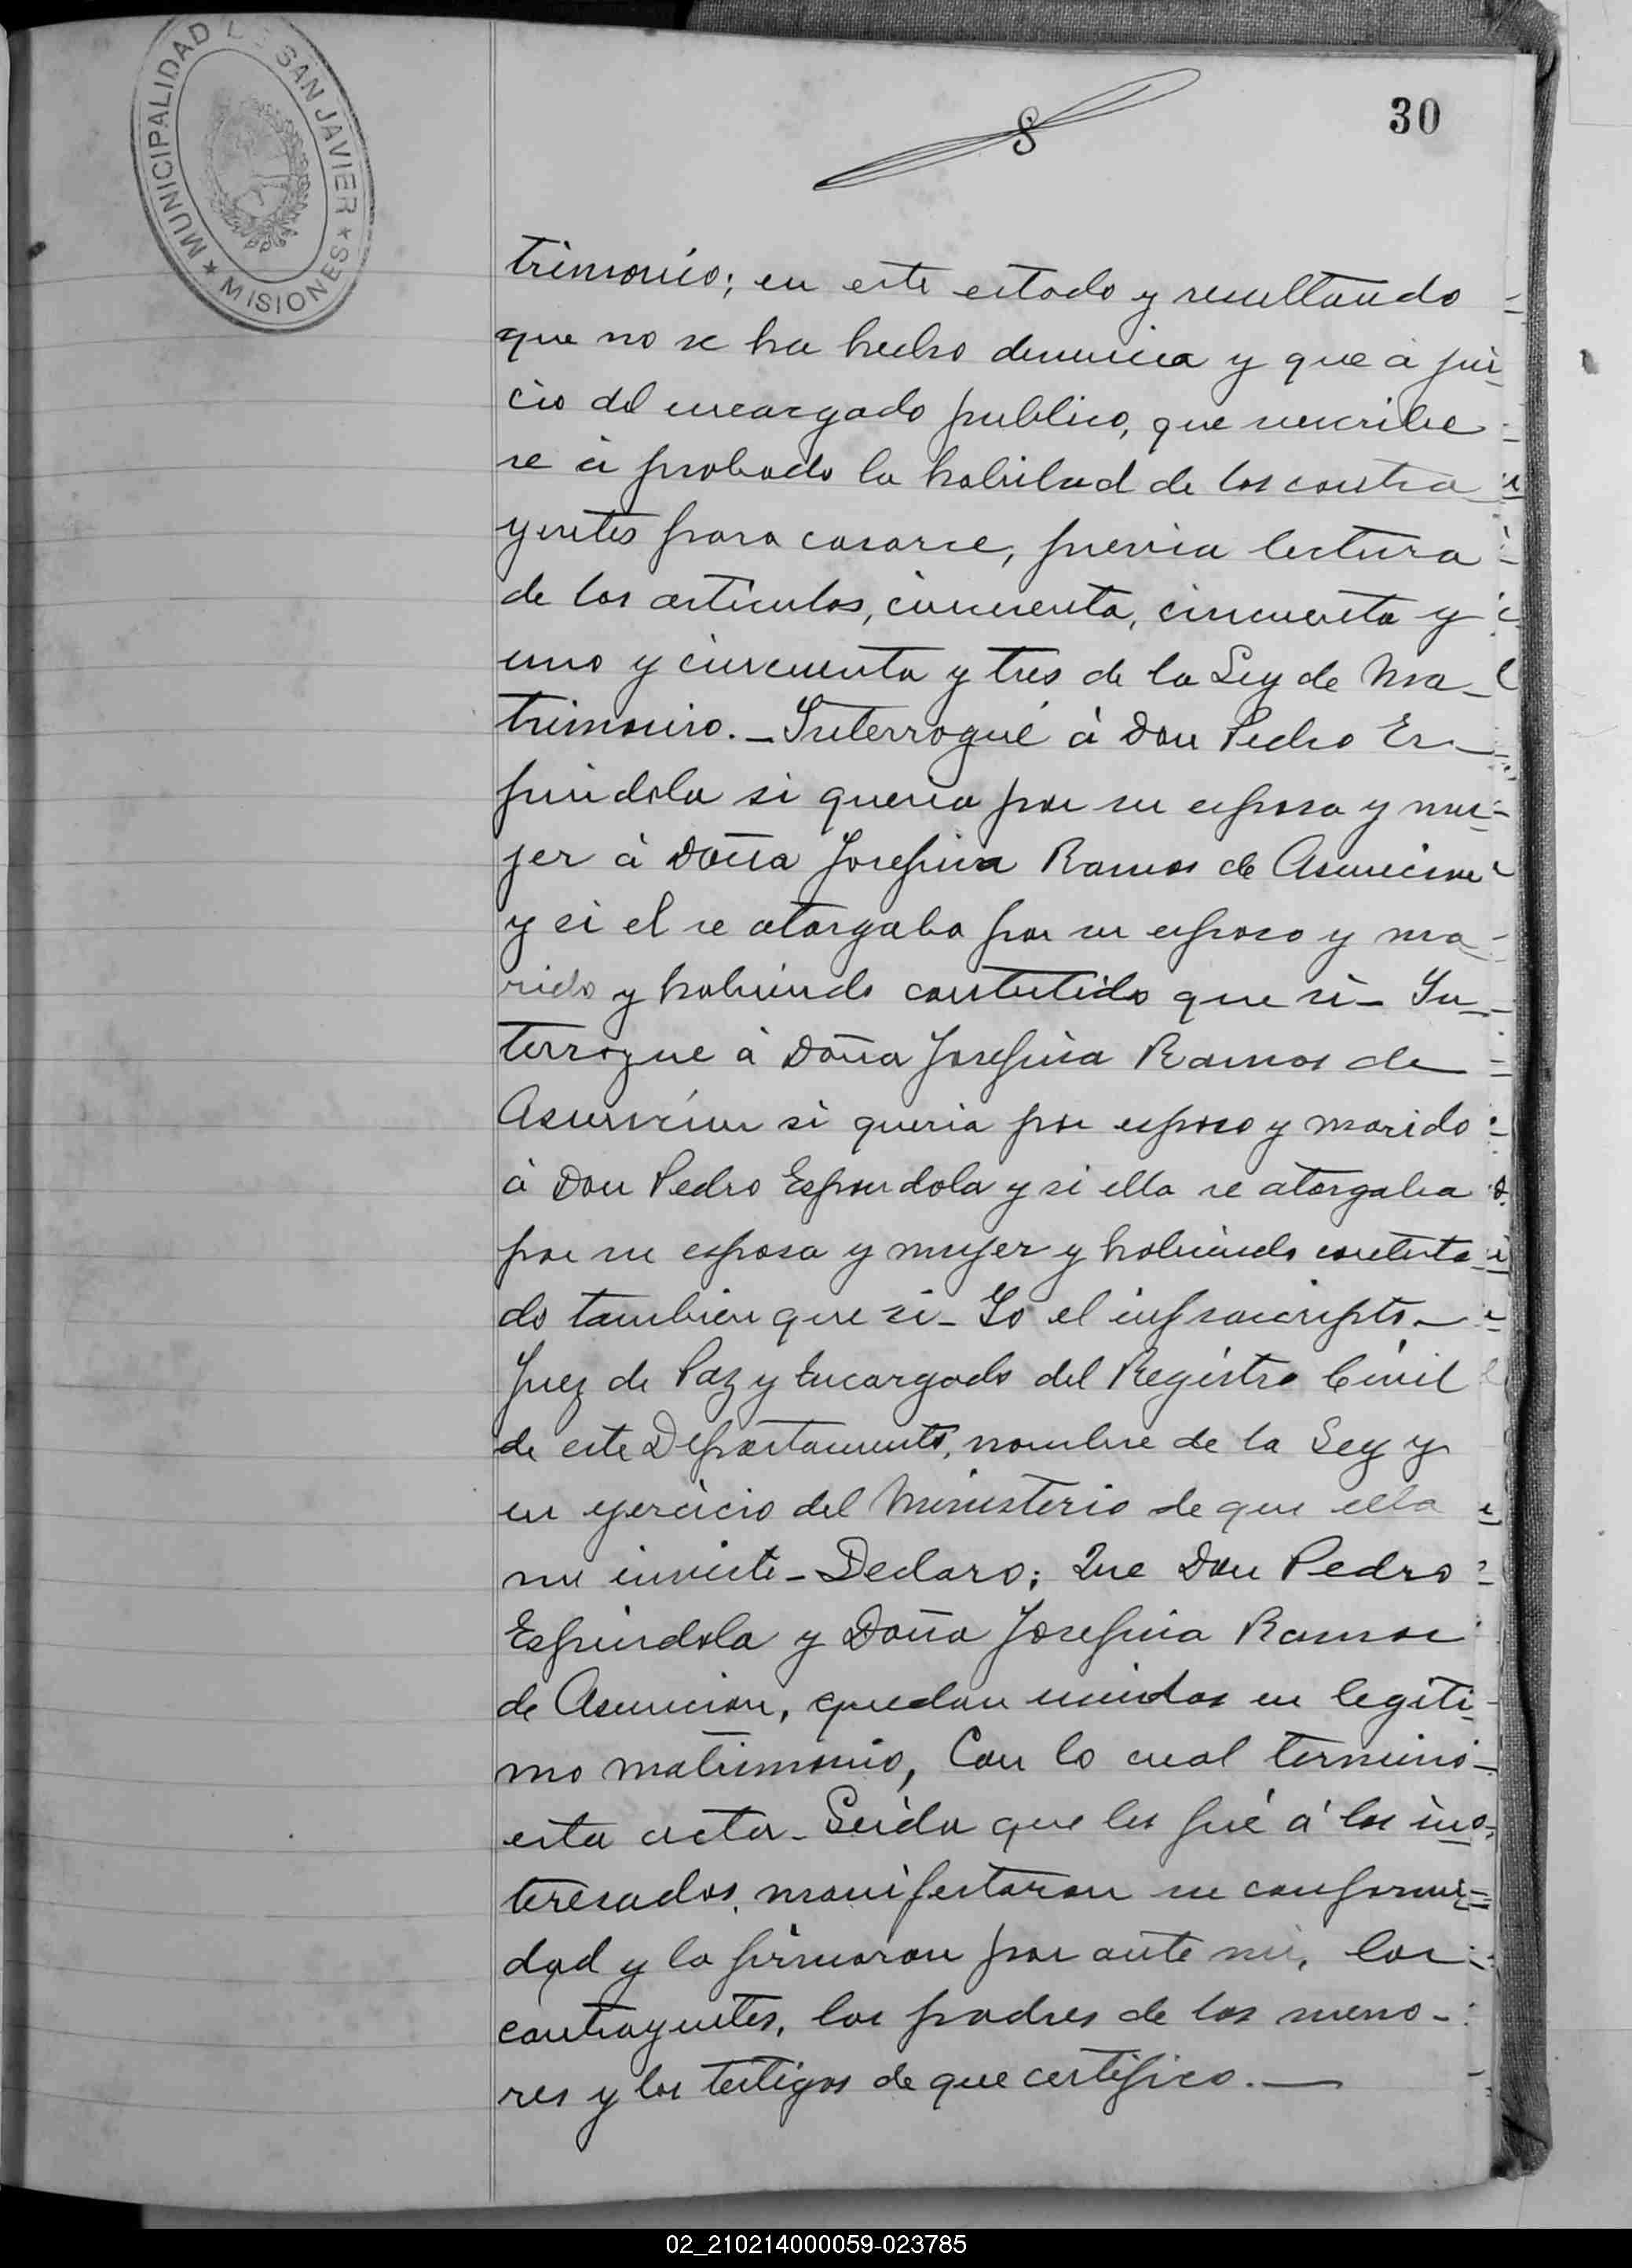 MUNICIPALIDAD DE SAN JAVIER
★ MISIONES ★
30
trimonio; en este estado y resultando
que no se ha hecho denuncia y que á jui_
cio del encargado publico, que suscribe
se á probado la habilidad de los contra_
yentes para casarse, previa lectura
de los articulos, cincuenta, cincuenta y
uno y cincuenta y tres de la Ley de Ma_
trimonio. _ Interrogué á Don Pedro Es_
pindola si queria por su esposa y mu_
jer á Doña Josefina Ramos de Asuncion
y si el se otorgaba por su esposo y ma_
rido y habiendo contestido que si_ In_
terrogue á Doña Josefina Ramos de
Asuncion si queria por esposo y marido
á Don Pedro Espindola y si ella se otorgaba
por su esposa y mujer y habiendo contesta_
do tambien que si_ Yo el infrascripto_
Juez de Paz y Encargado del Registro Civil
de este Departamento, nombre de la Ley y
en ejercicio del Ministerio de que ella
me inviste_ Declaro; Que Don Pedro
Espindola y Doña Josefina Ramos
de Asuncion, quedan unidos en legiti_
mo matrimonio, Con lo cual terminó_
esta acta_ Leida que les fué á los in_
teresados, manifestaron su conformi_
dad y la firmaron por ante mi, los
contrayentes, los padres de los meno_
res y los testigos de que certifico._
02_210214000059-023785